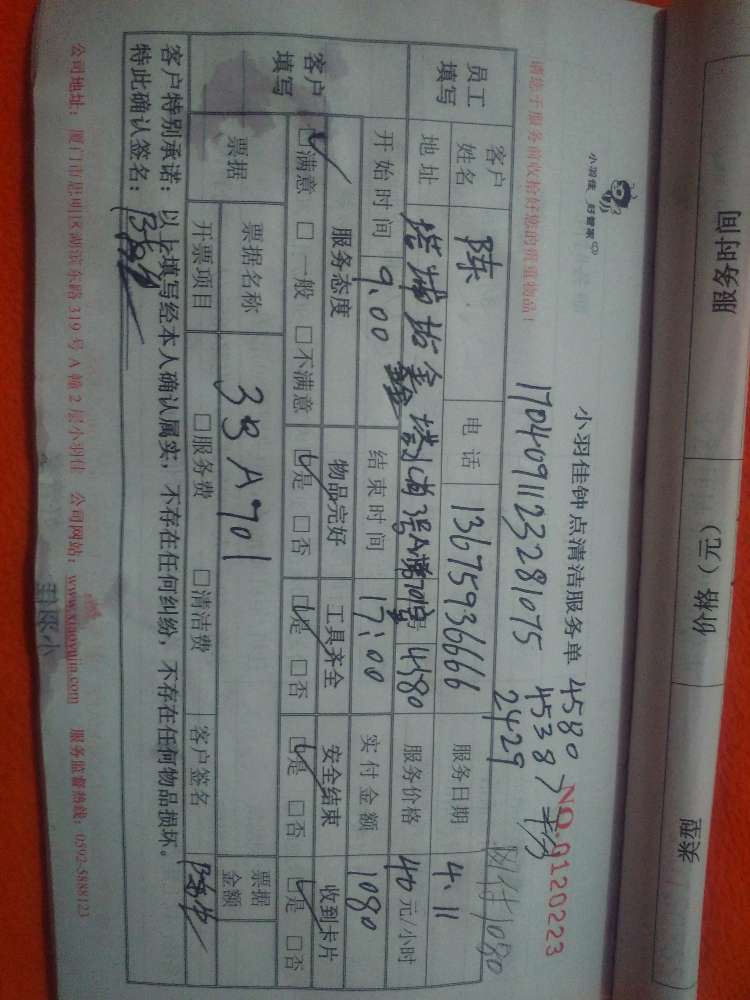 小羽佳 好管家
小羽佳钟点清洁服务单
NO.0120223
1704091123281075
4580
4538
2429
网付1080
请您于服务前收拾好您的贵重物品！
员工填写
客户姓名 陈 电话 13675936666 服务日期 4.11
地址 4580 服务价格 40元/小时
开始时间 9:00 结束时间 17:00 实付金额 1080
客户填写
服务态度 物品完好 工具齐全 安全结束 收到卡片
☑满意 □一般 □不满意 ☑是 □否 ☑是 □否 ☑是 □否 ☑是 □否
票据 票据名称 3号A701 票据金额
开票项目 □服务费 □清洁费 客户签名
客户特别承诺：以上填写经本人确认属实，不存在任何纠纷，不存在任何物品损坏。
特此确认签名：
公司地址：厦门市思明区湖滨东路319号A幢2层小羽佳 公司网站：www.xiaoyujia.com 服务监督热线：0592-5888123
服务时间
价格（元）
类型